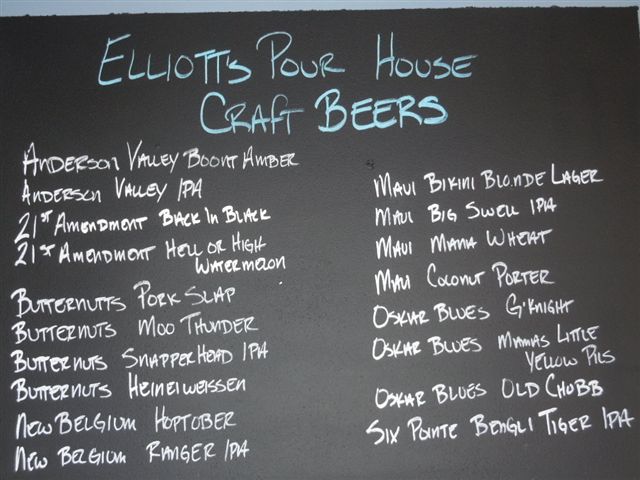 Elliott's Pour House
Craft Beers
Anderson Valley Boont Amber
Anderson Valley IPA
21st Amendment Back In Black
21st Amendment Hell or High
Watermelon
Butternutts Pork Slap
Butternuts Moo Thunder
Butternuts Snapperhead IPA
Butternuts Heineiweissen
New Belgium Hoptober
New Belgium Ranger IPA
Maui Bikini Blonde Lager
Maui Big Swell IPA
Maui Mama Wheat
Maui Coconut Porter
Oskar Blues G'Knight
Oskar Blues Mamas Little
Yellow Pils
Oskar Blues Old Chubb
Six Pointe Bengli Tiger IPA